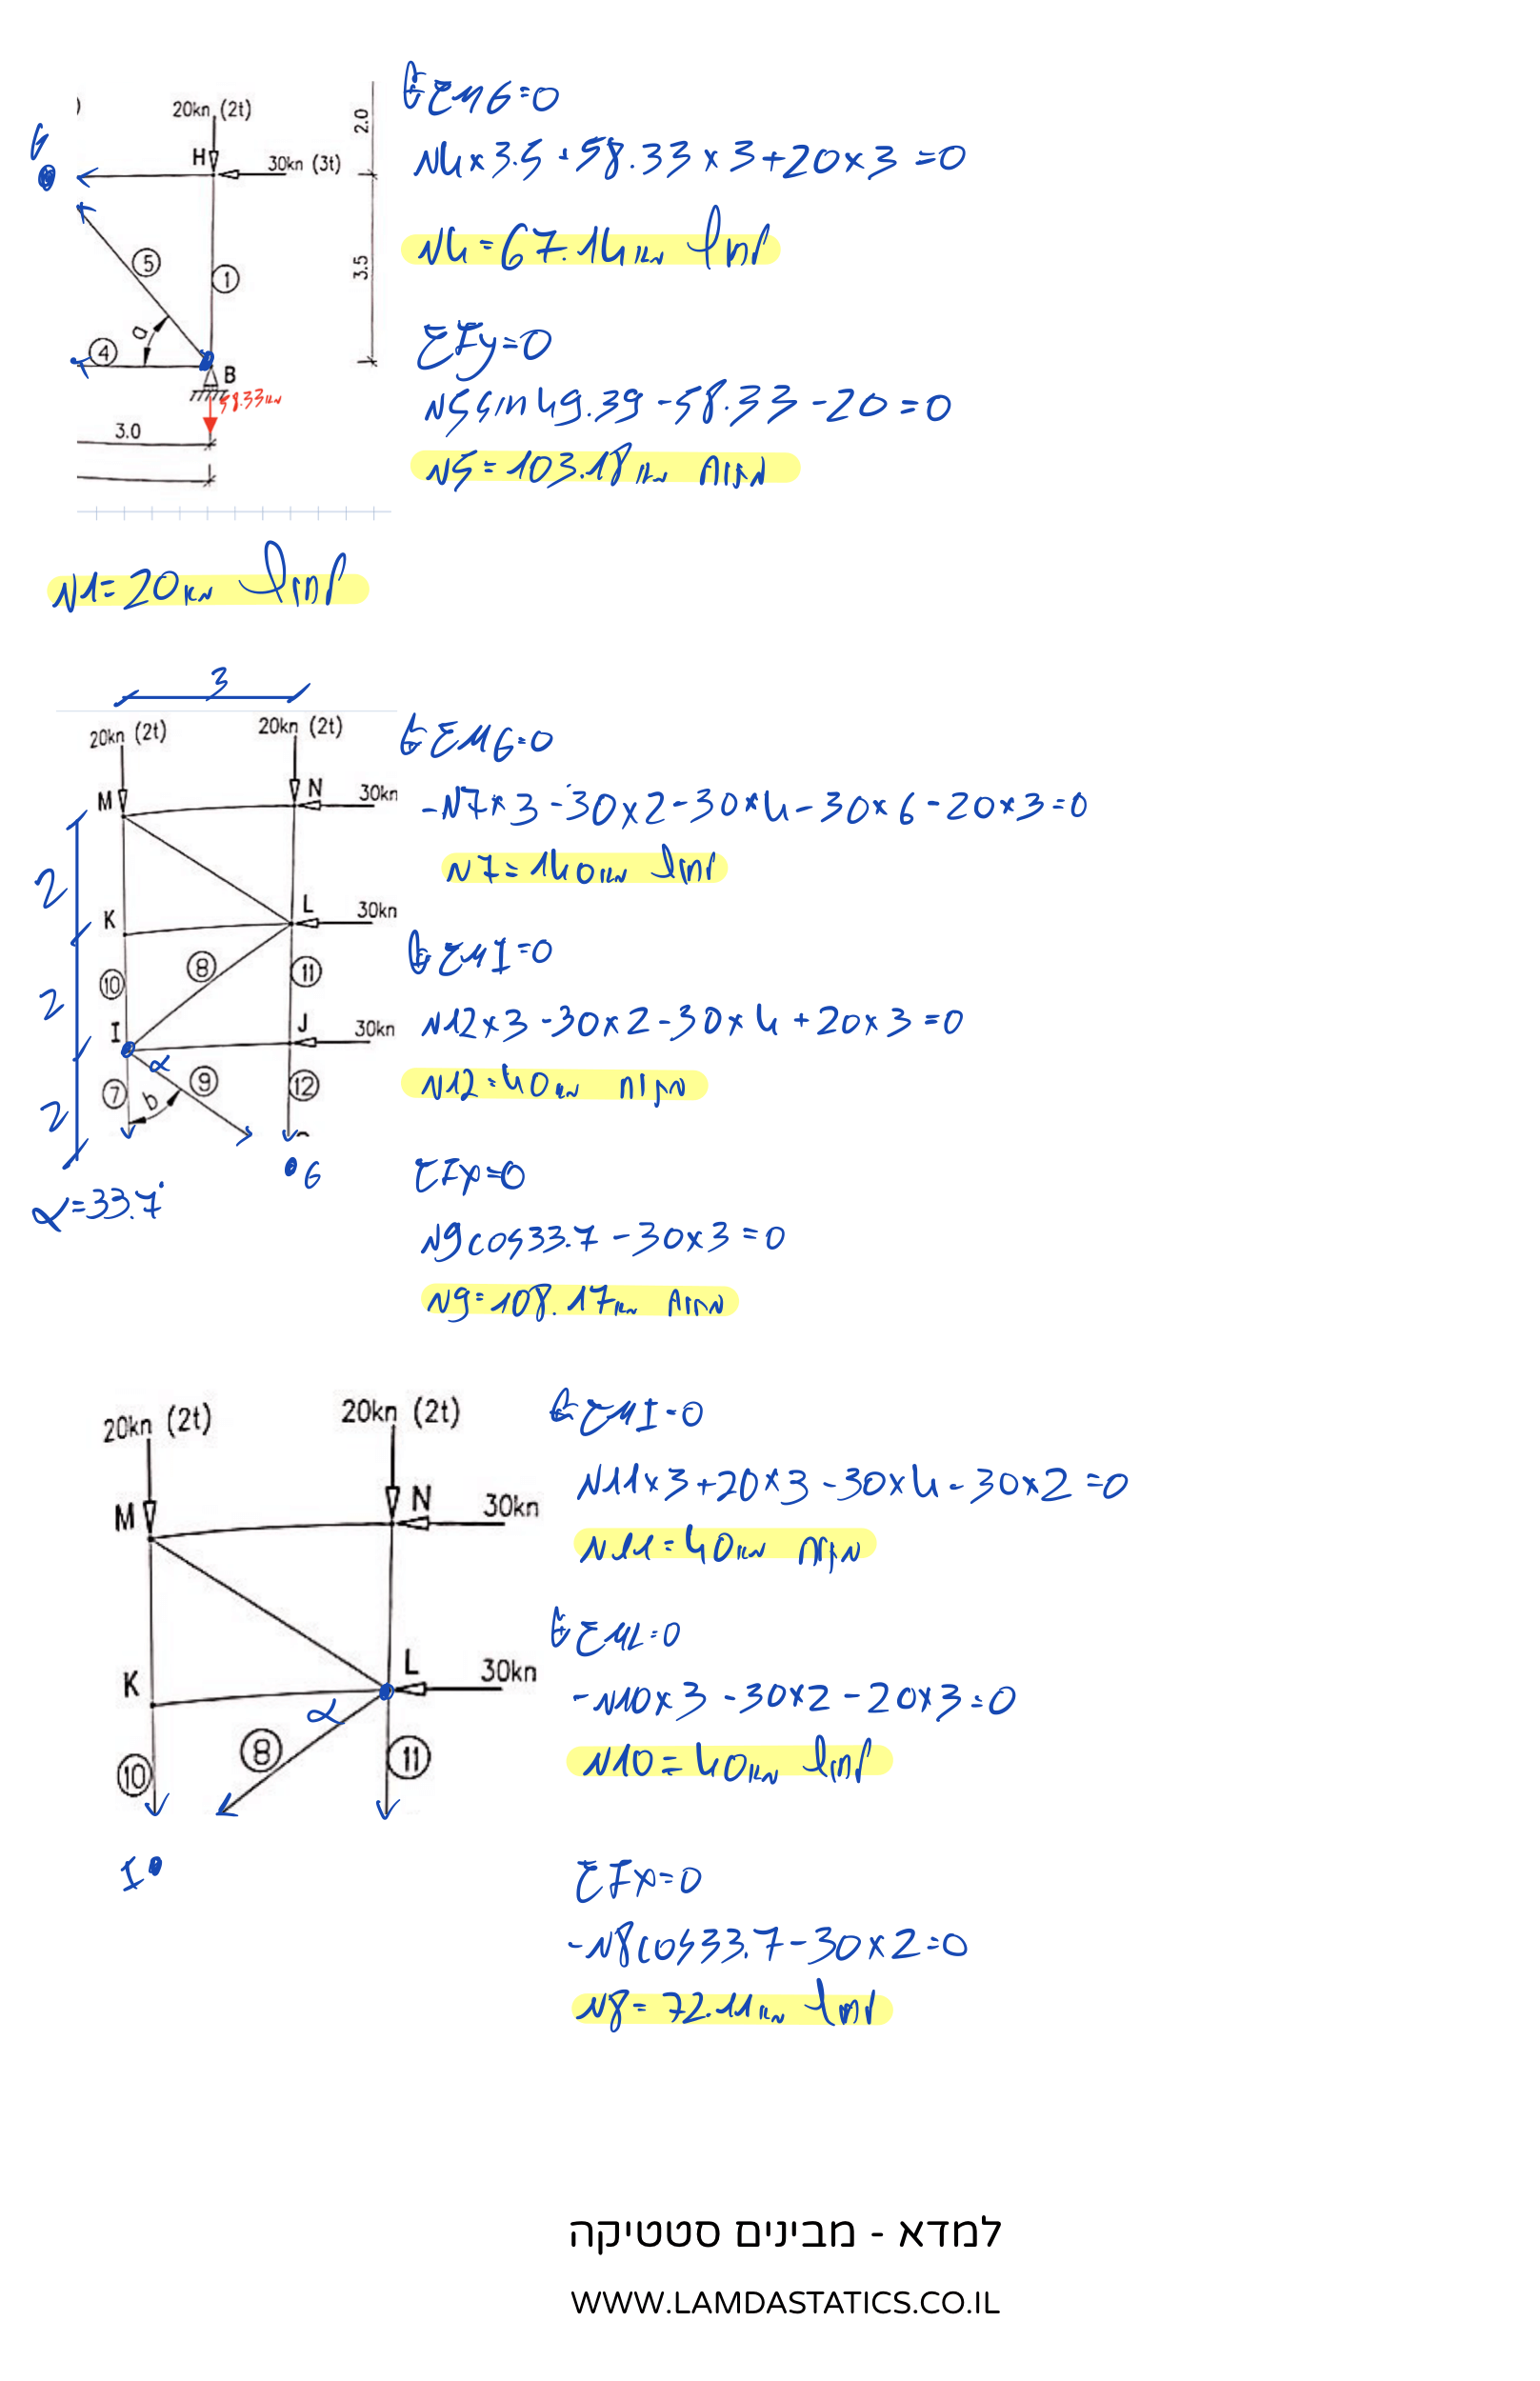 20kn (2t)
H
30kn (3t)
2.0
3.5
G
⑤
①
a
④
B
58.33kN
3.0
ΣMG=0
N4×3.5+58.33×3+20×3=0
N4=67.14kN לחוץ
ΣFy=0
N5sin49.39-58.33-20=0
N5=103.18kN מתוח
N1=20kN לחוץ
3
20kn (2t)
20kn (2t)
M
N
30kn
2
K
L
30kn
⑩
⑧
⑪
2
I
J
30kn
α
⑦
b
⑨
⑫
2
G
α=33.7°
ΣMG=0
-N7×3-30×2-30×4-30×6-20×3=0
N7=140kN לחוץ
ΣMI=0
N12×3-30×2-30×4+20×3=0
N12=40kN מתוח
ΣFx=0
N9cos33.7-30×3=0
N9=108.17kN מתוח
20kn (2t)
20kn (2t)
M
N
30kn
K
L
30kn
α
⑩
⑧
⑪
I
ΣMI=0
N11×3+20×3-30×4-30×2=0
N11=40kN מתוח
ΣML=0
-N10×3-30×2-20×3=0
N10=40kN לחוץ
ΣFx=0
-N8cos33.7-30×2=0
N8=72.11kN לחוץ
למדא - מבינים סטטיקה
WWW.LAMDASTATICS.CO.IL